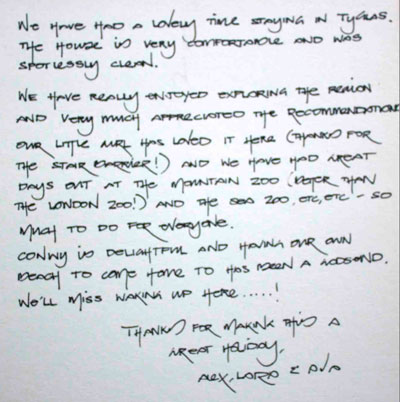 WE HAVE HAD A LOVELY TIME STAYING IN TYGLAS.
THE HOUSE IS VERY COMFORTABLE AND WAS
SPOTLESSLY CLEAN.
WE HAVE REALLY ENJOYED EXPLORING THE REGION
AND VERY MUCH APPRECIATED THE RECOMMENDATIONS
OUR LITTLE GIRL HAS LOVED IT HERE (THANKS FOR
THE STAIR BARRIER!) AND WE HAVE HAD GREAT
DAYS OUT AT THE MOUNTAIN ZOO (BETTER THAN
THE LONDON ZOO!) AND THE SEA ZOO, ETC, ETC - SO
MUCH TO DO FOR EVERYONE.
CONWY IS DELIGHTFUL AND HAVING OUR OWN
BEACH TO COME HOME TO HAS BEEN A GODSEND.
WE'LL MISS WAKING UP HERE.....!
THANKS FOR MAKING THIS A
GREAT HOLIDAY,
ALEX, & AVA